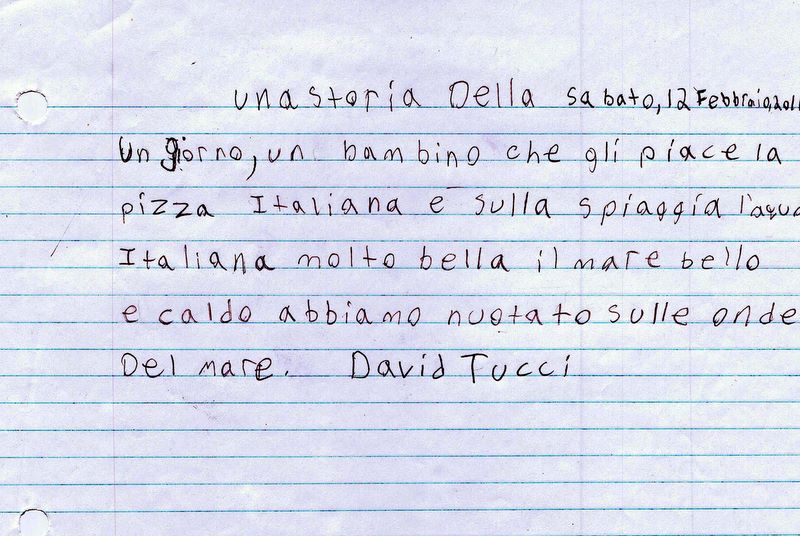 una storia Della sabato, 12 Febbraio, 2011
Un giorno, un bambino che gli piace la
pizza Italiana e sulla spiaggia l'aqua
Italiana molto bella il mare bello
e caldo abbiamo nuotato sulle onde
Del mare. David Tucci